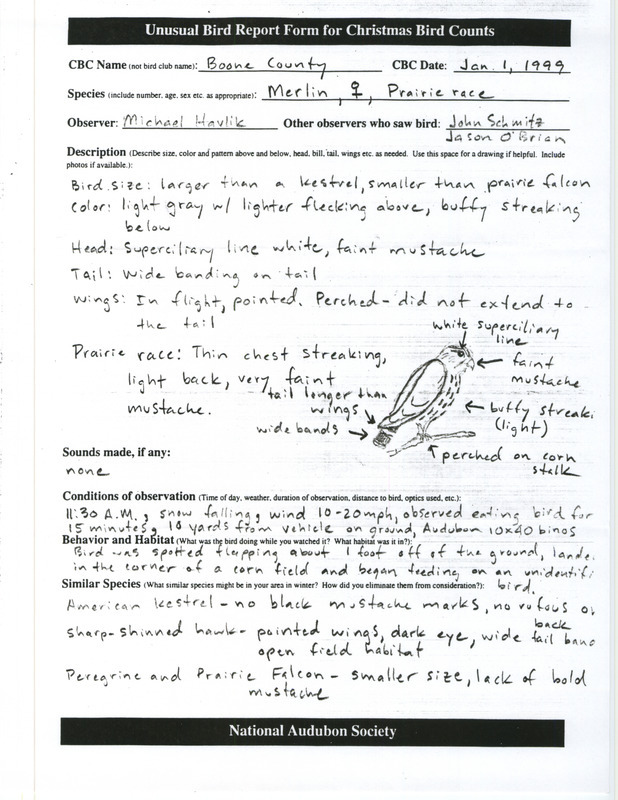 Unusual Bird Report Form for Christmas Bird Counts
CBC Name (not bird club name): Boone County CBC Date: Jan. 1, 1999
Species (include number, age, sex etc. as appropriate): Merlin, ♀, Prairie race
Observer: Michael Havlik Other observers who saw bird: John Schmitz
Jason O'Brian
Description (Describe size, color and pattern above and below, head, bill, tail, wings etc. as needed. Use this space for a drawing if helpful. Include
photos if available.):
Bird size: larger than a kestrel, smaller than prairie falcon
Color: light gray w/ lighter flecking above, buffy streaking
below
Head: Superciliary line white, faint mustache
Tail: Wide banding on tail
Wings: In flight, pointed. Perched - did not extend to
the tail
Prairie race: Thin chest streaking,
light back, very faint
mustache.
white superciliary
line
faint
mustache
tail longer than
wings
wide bands
buffy streaki
(light)
perched on corn
stalk
Sounds made, if any:
none
Conditions of observation (Time of day, weather, duration of observation, distance to bird, optics used, etc.):
11:30 A.M., snow falling, wind 10-20mph, observed eating bird for
15 minutes, 10 yards from vehicle on ground, Audubon 10x40 binos
Behavior and Habitat (What was the bird doing while you watched it? What habitat was it in?):
Bird was spotted flapping about 1 foot off of the ground, lande
in the corner of a corn field and began feeding on an unidentifi
bird.
Similar Species (What similar species might be in your area in winter? How did you eliminate them from consideration?):
American Kestrel - no black mustache marks, no rufous o
back
Sharp-shinned hawk - pointed wings, dark eye, wide tail band
open field habitat
Peregrine and Prairie Falcon - smaller size, lack of bold
mustache
National Audubon Society